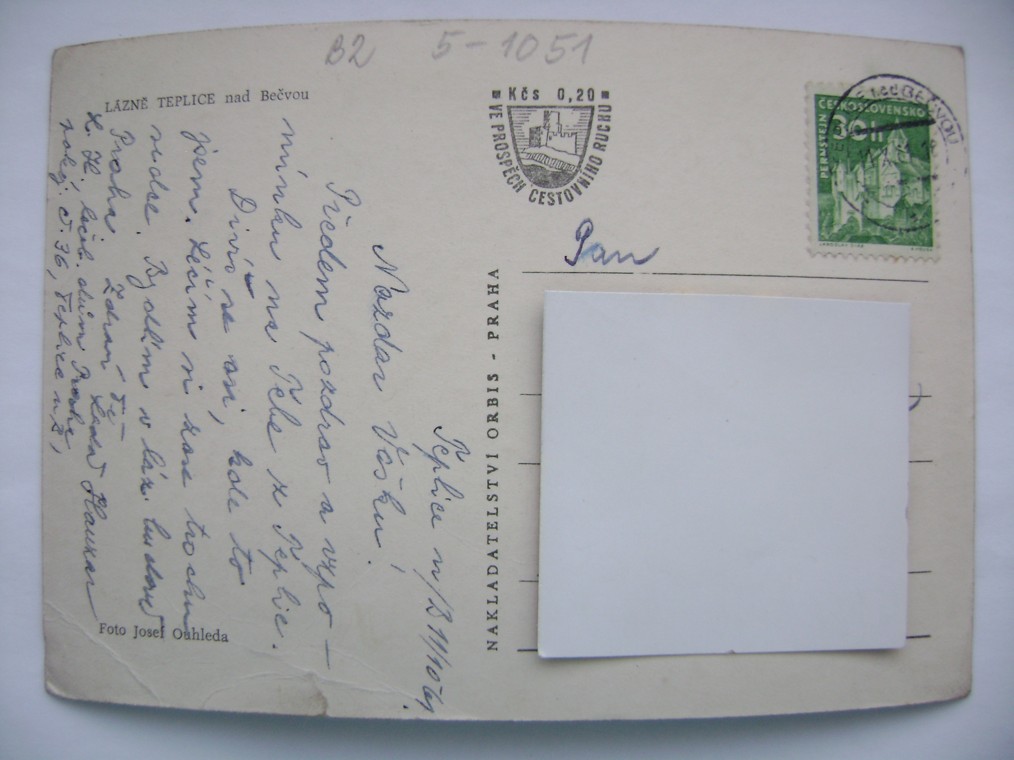 B2 5-1051
LÁZNĚ TEPLICE nad Bečvou
Kčs 0,20
VE PROSPĚCH CESTOVNÍHO RUCHU
ČESKOSLOVENSKO
PERNŠTEJN
30 h
NAD BEČVOU
Pan
NAKLADATELSTVÍ ORBIS - PRAHA
Teplice n/B 11/10
Nazdar Vašku!
Předem pozdrav a vzpo-
mínku na Tebe z Teplic.
Divíš se asi, kde to
jsem. Léčím si zase trochu
srdce. Bydlím v láz. budově
Praha. Zdraví Tě
L. H. léčeb. dům Praha,
pokoj. č. 36, Teplice n. B.,
Foto Josef Ouhleda